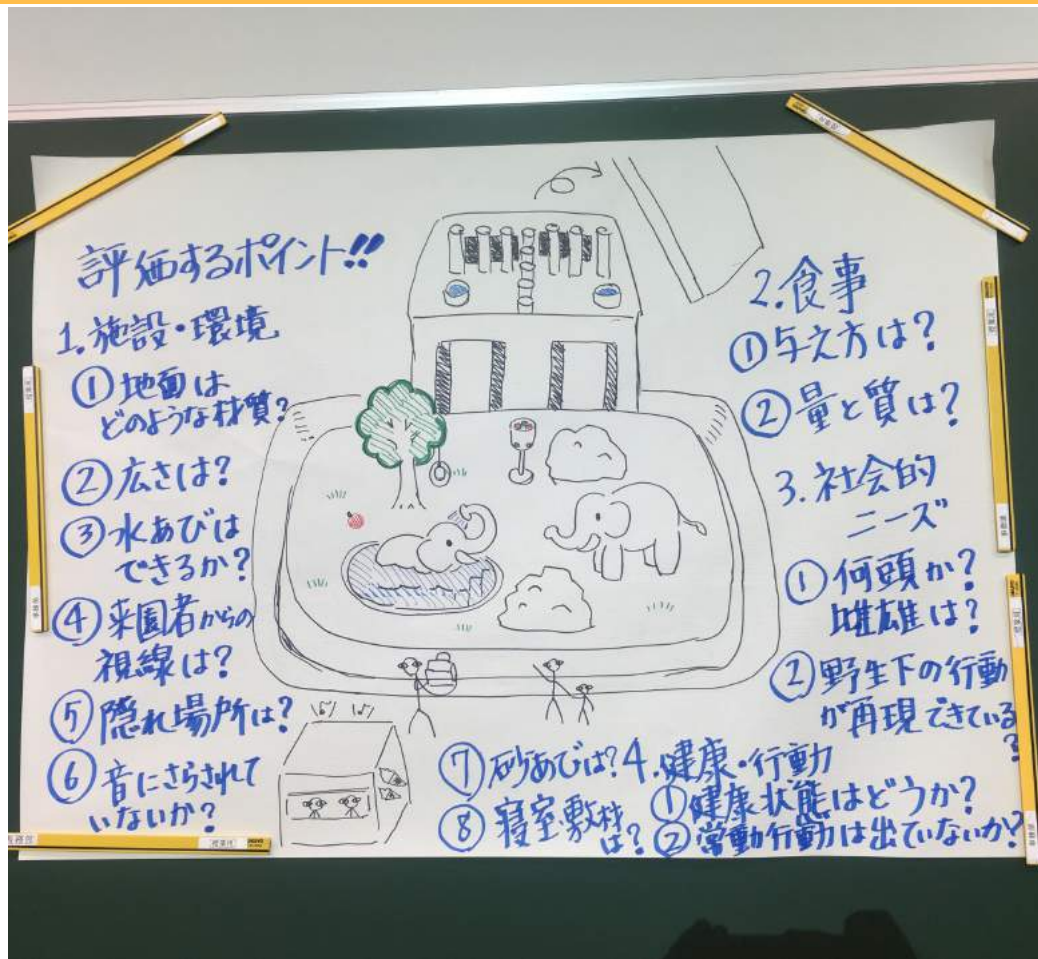 評価するポイント!!
1.施設・環境
①地面は
どのような材質?
②広さは?
③水あびは
できるか?
④来園者からの
視線は?
⑤隠れ場所は?
⑥音にさらされて
いないか?
⑦砂あびは?
⑧寝室敷材
は?
2.食事
①与え方は?
②量と質は?
3.社会的
ニーズ
①何頭か?
雌雄は?
②野生下の行動
が再現できている
?
4.健康・行動
①健康状態はどうか?
②常動行動は出ていないか?